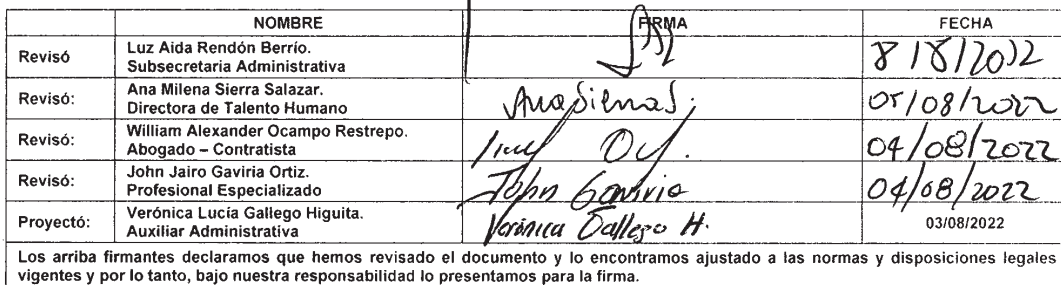 NOMBRE FIRMA FECHA
Revisó Luz Aida Rendón Berrío.
Subsecretaria Administrativa 8/8/2022
Revisó: Ana Milena Sierra Salazar.
Directora de Talento Humano AnaSierraS. 05/08/2022
Revisó: William Alexander Ocampo Restrepo.
Abogado – Contratista 04/08/2022
Revisó: John Jairo Gaviria Ortiz.
Profesional Especializado John Gaviria 04/08/2022
Proyectó: Verónica Lucía Gallego Higuita.
Auxiliar Administrativa Verónica Gallego H. 03/08/2022
Los arriba firmantes declaramos que hemos revisado el documento y lo encontramos ajustado a las normas y disposiciones legales
vigentes y por lo tanto, bajo nuestra responsabilidad lo presentamos para la firma.